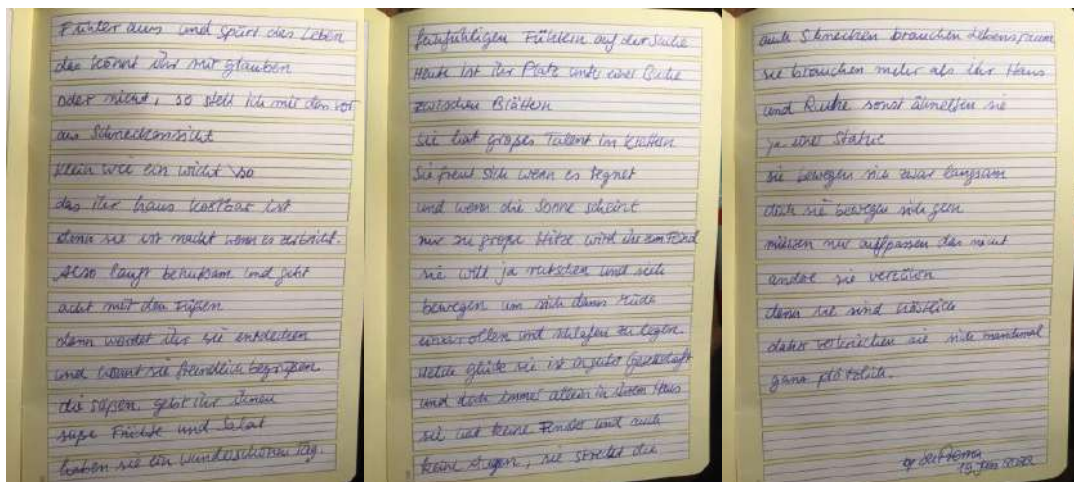 Fühler aus und spürt das Leben
das könnt ihr mir glauben
oder nicht, so stell ich mir das vor
aus Schneckensicht
klein wie ein wicht so
das ihr haus kostbar ist
denn sie ist nackt wenn es zerbricht.
Also lauft behutsam und gebt
acht mit den Füßen
dann werdet ihr sie entdecken
und könnt sie freundlich begrüßen
die süßen, gebt ihr ihnen
süße Früchte und Salat
haben sie ein wunderschönen Tag.
feinfühligen Fühlern auf der Suche
Heute ist ihr Platz unter einer Buche
zwischen Blättern
sie hat großes Talent im klettern
Sie freut sich wenn es regnet
und wenn die Sonne scheint
nur zu große Hitze wird ihr zum Feind
sie will ja rutschen und sich
bewegen um sich dann müde
einzurollen und schlafen zu legen.
Welch glück sie ist in guter Gesellschaft
und doch immer allein in ihrem Haus
sie hat keine und auch
keine Augen, sie streckt die
auch Schnecken brauchen Lebensraum
sie brauchen mehr als ihr Haus
und Ruhe sonst ähnelten sie
ja einer Statue
sie bewegen sich zwar langsam
doch sie bewegen sich gern
müssen nur aufpassen das nicht
andere sie verzehren
denn sie sind köstlich
daher verkriechen sie sich manchmal
ganz plötzlich.